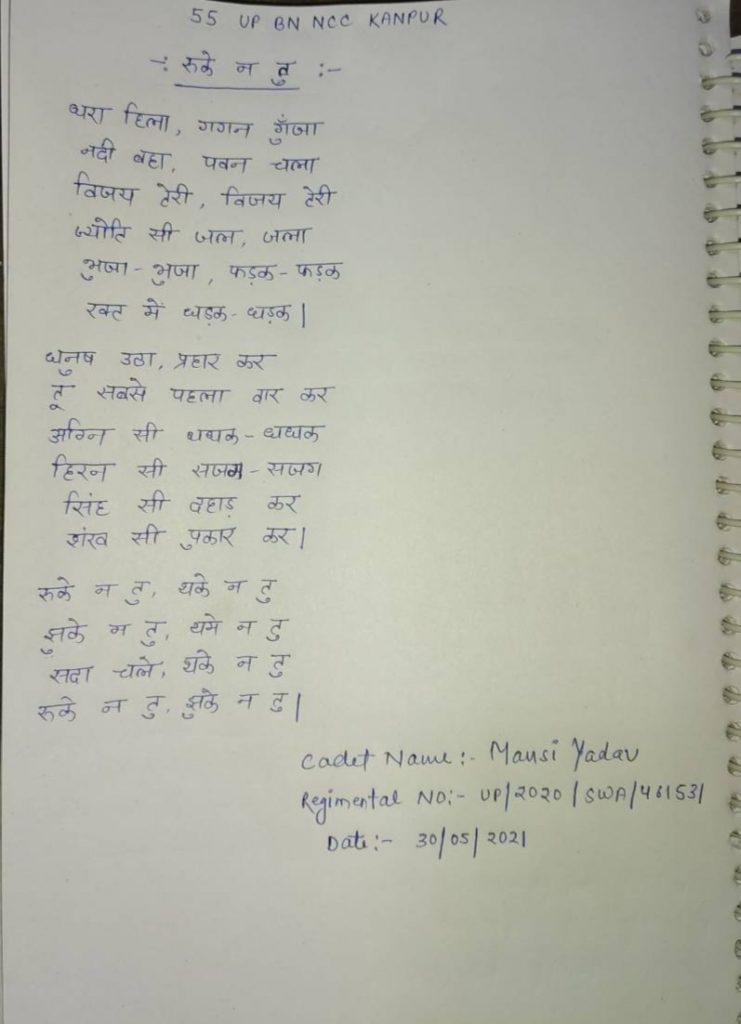 55 UP BN NCC KANPUR
-: रुके न तु :-
धरा हिला, गगन गुँजा
नदी बहा, पवन चला
विजय तेरी, विजय तेरी
ज्योति सी जल, जला
भुजा - भुजा, फड़क - फड़क
रक्त में धड़क - धड़क |
धनुष उठा, प्रहार कर
तू सबसे पहला वार कर
अग्नि सी धधक - धधक
हिरन सी सजग - सजग
सिंह सी दहाड़ कर
शंख सी पुकार कर |
रुके न तु, थके न तु
झुके न तु, थमे न तु
सदा चले, थके न तु
रुके न तु, झुके न तु |
Cadet Name :- Mansi Yadav
Regimental NO:- UP/2020/SWA/461531
Date :- 30/05/2021